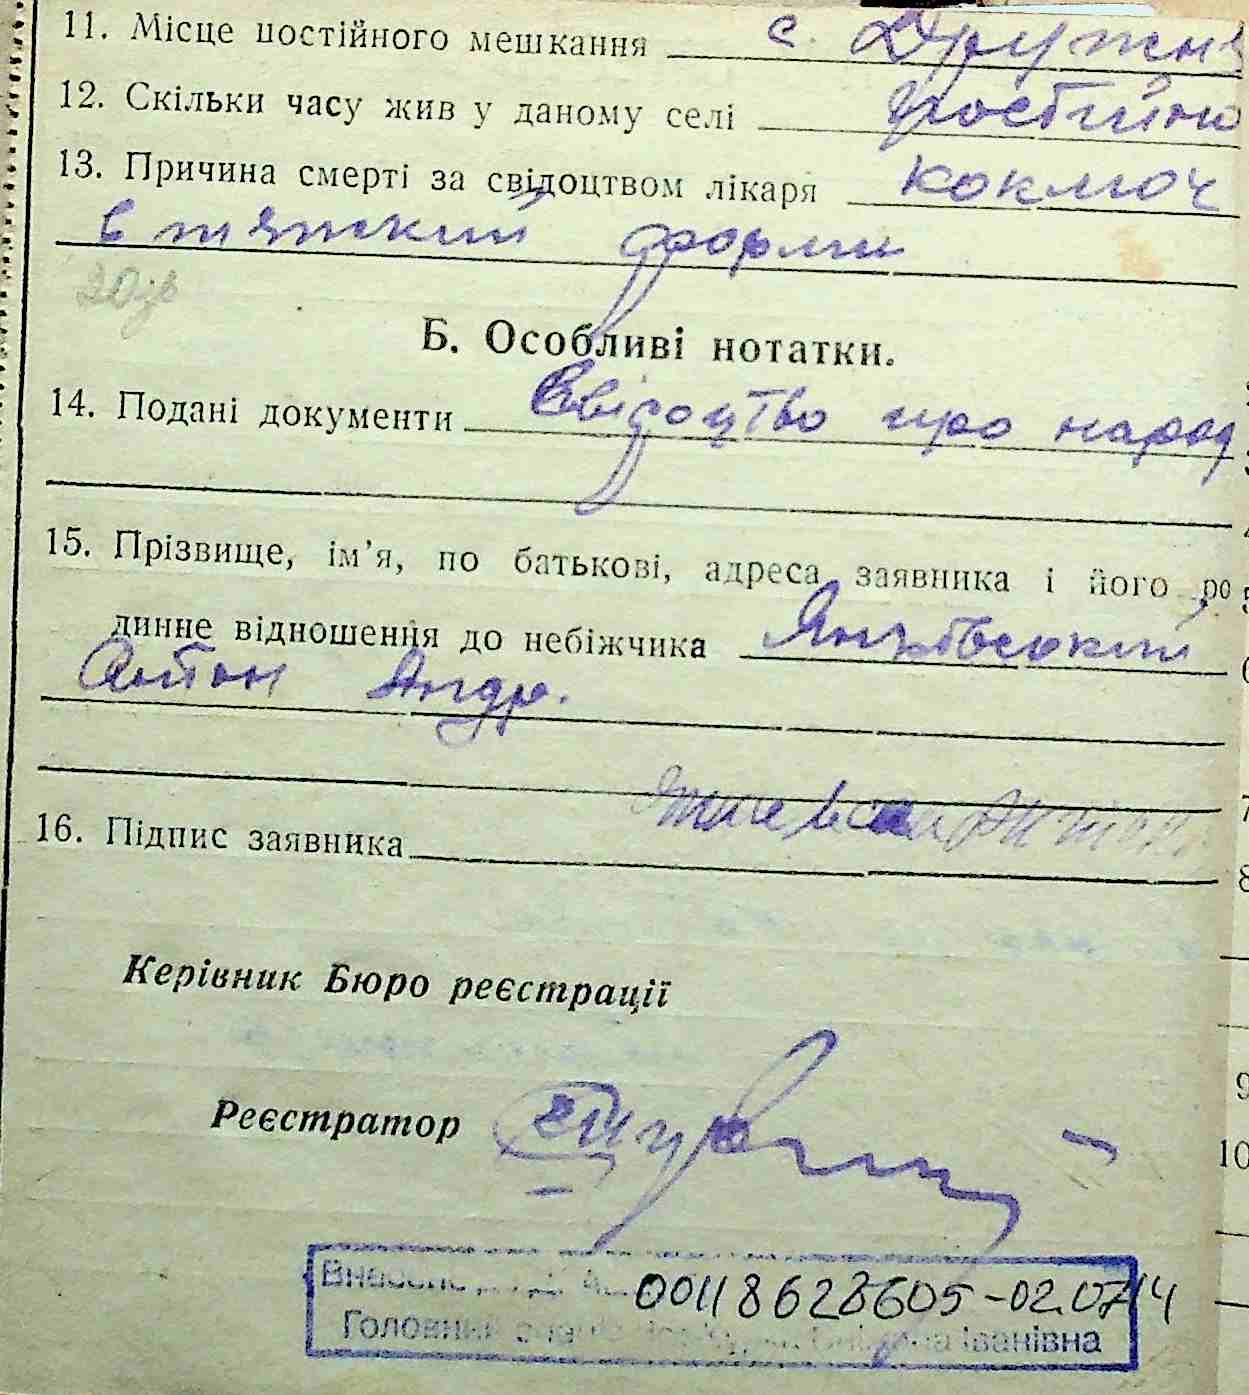 11. Місце постійного мешкання с. Дружня
12. Скільки часу жив у даному селі постійно
13. Причина смерті за свідоцтвом лікаря коключ
в тяжкий форми
20зв
Б. Особливі нотатки.
14. Подані документи Свідоцтво про народ
15. Прізвище, ім’я, по батькові, адреса заявника і його ро
динне відношення до небіжчика Янчевський
Антон Андр.
16. Підпис заявника Антон
Керівник Бюро реєстрації
Реєстратор
Внесено 00118623605-02.07.14
Головний Іванівна